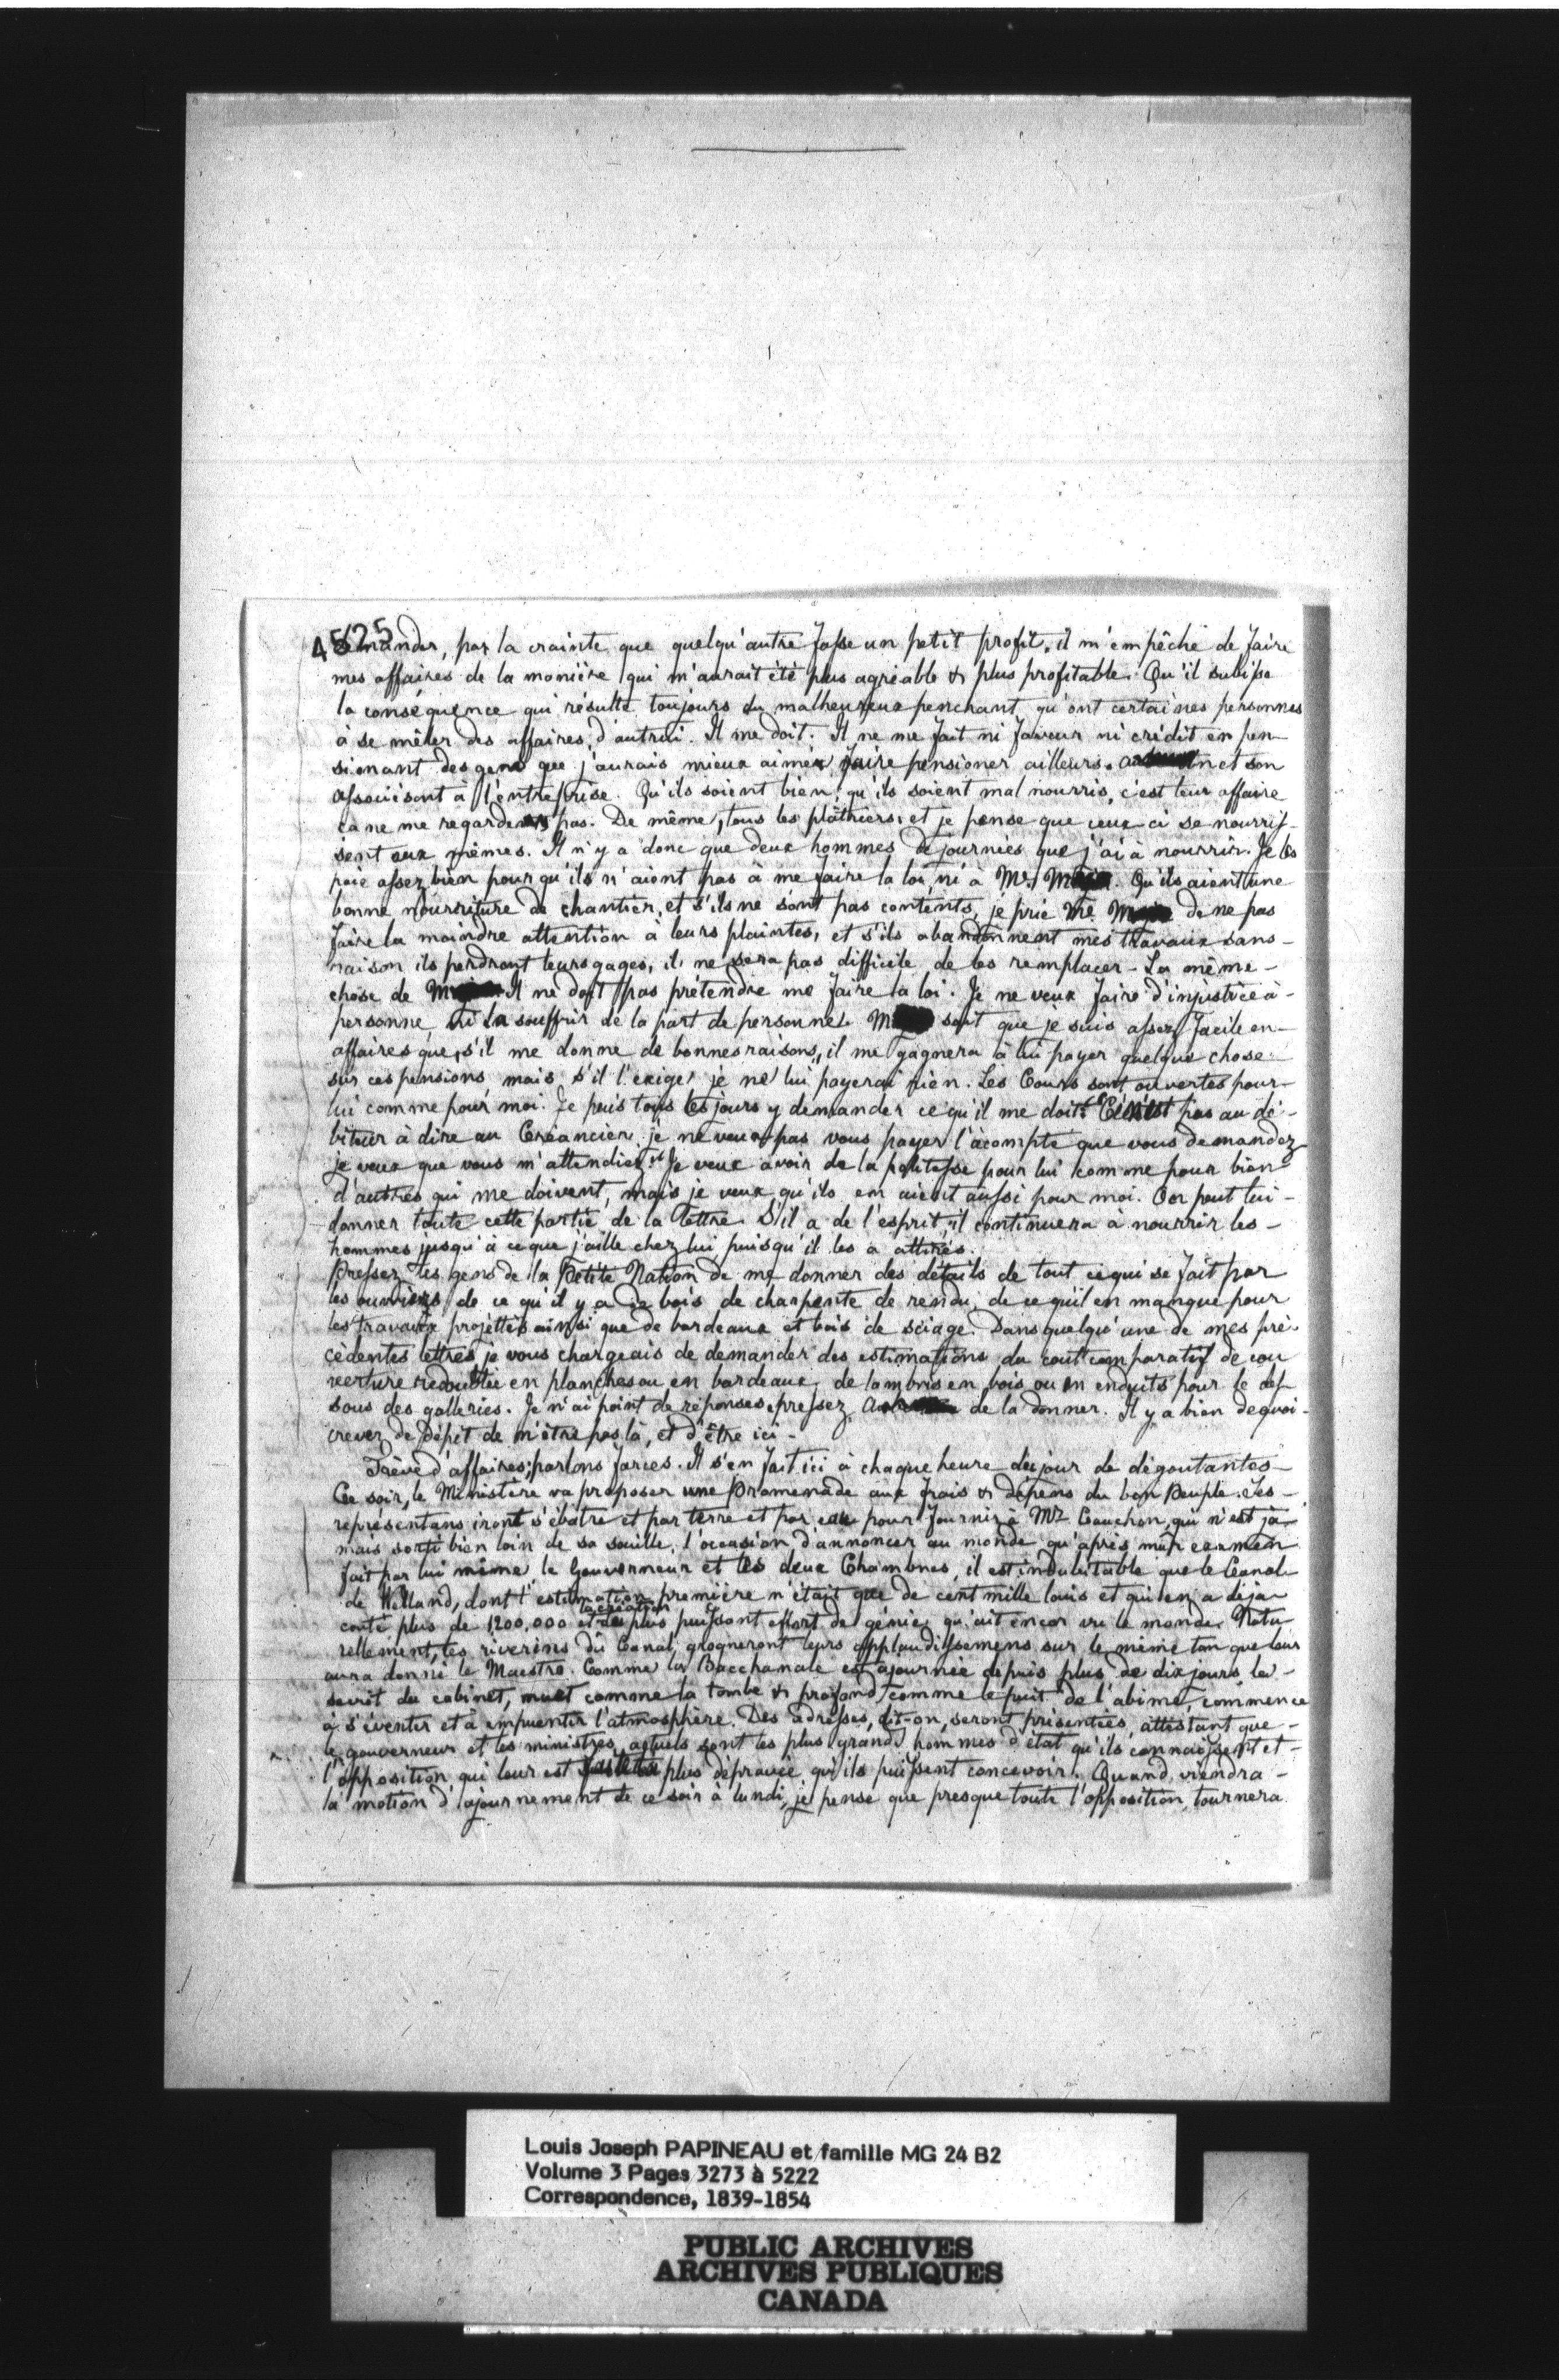 4525
demander, par la crainte que quelqu'autre fasse un petit profit, il m'empêche de faire
mes affaires de la manière qui m'aurait été plus agréable & plus profitable. Qu'il subisse
la conséquence qui résulte toujours du malheureux penchant qu'ont certaines personnes
à se mêler des affaires d'autrui. Il me doit. Il ne me fait ni faveur ni crédit en pen-
sionant des gens que j'aurais mieux aimés faire pensioner ailleurs. et son
associé sont à l'entreprise. Qu'ils soient bien, qu'ils soient mal nourris, c'est leur affaire
ça ne me regarde pas. De même, tous les plâtriers, et je pense que ceux ci se nourris-
sent eux mêmes. Il n'y a donc que deux hommes de journées que j'ai à nourrir. Je les
paie assez bien pour qu'ils n'aient pas à me faire la loi, ni à Mr. Qu'ils aient une
bonne nourriture de chantier, et s'ils ne sont pas contents, je prie Mr. de ne pas
faire la moindre attention à leurs plaintes, et s'ils abandonnent mes travaux sans-
raison ils perdront leurs gages, il ne sera pas difficile de les remplacer - La même-
chose de Il ne doit pas prétendre me faire la loi. Je ne veux faire d'injustice à-
personne, ni la souffrir de la part de personne. sait que je suis assez facile en-
affaires que, s'il me donne de bonnes raisons, il me gagnera à lui payer quelque chose-
sur ces pensions mais s'il l'exige, je ne lui payerai rien. Les Cours sont ouvertes pour-
lui comme pour moi. Je puis tous les jours y demander ce qu'il me doit. Ce n'est pas au dé-
biteur à dire au Créancier, je ne veux pas vous payer l'àcompte que vous demandez
je veux que vous m'attendiez." Je veux avoir de la politesse pour lui comme pour bien
d'autres qui me doivent, mais je veux qu'ils en aient aussi pour moi. On peut lui-
donner toute cette partie de la lettre. S'il a de l'esprit, il continuera à nourrir les-
hommes jusqu'à ce que j'aille chez lui, puisqu'il les a attirés.
Pressez les gens de la Petite Nation de me donner des détails de tout ce qui se fait par
les ouvriers de ce qu'il y a de bois de charpente de rendu, de ce qu'il en manque pour
les travaux projettés ainsi que de bardeaux et bois de sciage. Dans quelqu'une de mes pré-
cèdentes lettres je vous chargeais de demander des estimations du cout comparatif de cou
verture redoublée en planches ou en bardeaux, de lambris en bois ou en enduits pour le des-
sous des galleries. Je n'ai point de réponses, pressez de la donner. Il y a bien de quoi-
crever de dépit de n'être pas là, et d'être ici -
Trève d'affaires; parlons farces. Il s'en fait ici à chaque heure du jour de dégoutantes-
Ce soir, le Ministère va proposer une Promenade aux frais & dépens du bon Peuple. Ses-
représentans iront s'ébatre et par terre et par eau pour fournir à Mr. Cauchon, qui n'est ja-
mais sorti bien loin de sa souille, l'occasion d'annoncer au monde qu'après mûr examen
fait par lui même, le Gouverneur et les deux Chambres, il est indubitable que le Canal-
de Welland, dont l'estimation première n'était que de cent mille louis et qui en a déja-
couté plus de 1200,000 est la création du plus puissant effort de génie, qu'ait encor vu le monde. Natu-
rellement, les riverins du Canal, grogneront leurs applaudissemens sur le même ton que leur
aura donné le Maestro. Comme la Bacchanale est ajournée depuis plus de dix jours, le-
secrit du cabinet, muet comme la tombe & profond comme le puit de l'abime, commence
à s'éventer et à empuentir l'atmosphère. Des adresses, dit-on, seront présentées, attestant que-
le gouverneur et les ministres actuels sont les plus grands hommes d'état qu'ils connaissent et-
l'opposition qui leur est faite la plus dépravée qu'ils puissent concevoir. Quand viendra-
la motion d'ajournement de ce soir à lundi, je pense que presque toute l'opposition, tournera
Louis Joseph PAPINEAU et famille MG 24 B2
Volume 3 Pages 3273 à 5222
Correspondence, 1839-1854
PUBLIC ARCHIVES
ARCHIVES PUBLIQUES
CANADA